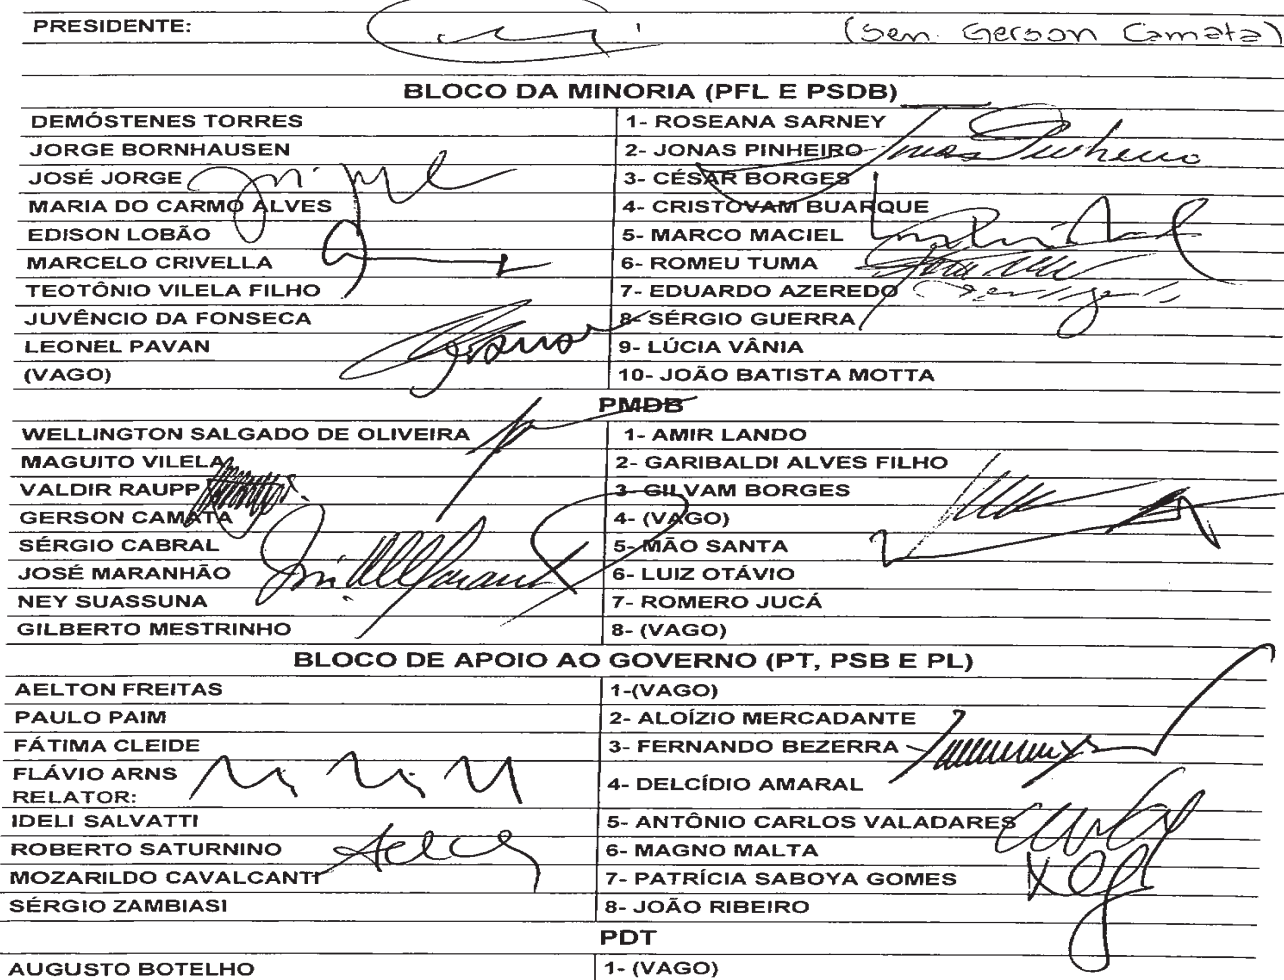 PRESIDENTE: (Sen. Gerson Camata)
BLOCO DA MINORIA (PFL E PSDB)
DEMÓSTENES TORRES 1- ROSEANA SARNEY
JORGE BORNHAUSEN 2- JONAS PINHEIRO Jonas Pinheiro
JOSÉ JORGE 3- CÉSAR BORGES
MARIA DO CARMO ALVES 4- CRISTOVAM BUARQUE
EDISON LOBÃO 5- MARCO MACIEL
MARCELO CRIVELLA 6- ROMEU TUMA
TEOTÔNIO VILELA FILHO 7- EDUARDO AZEREDO
JUVÊNCIO DA FONSECA 8- SÉRGIO GUERRA
LEONEL PAVAN 9- LÚCIA VÂNIA
(VAGO) 10- JOÃO BATISTA MOTTA
PMDB
WELLINGTON SALGADO DE OLIVEIRA 1- AMIR LANDO
MAGUITO VILELA 2- GARIBALDI ALVES FILHO
VALDIR RAUPP 3- GILVAM BORGES
GERSON CAMATA 4- (VAGO)
SÉRGIO CABRAL 5- MÃO SANTA
JOSÉ MARANHÃO 6- LUIZ OTÁVIO
NEY SUASSUNA 7- ROMERO JUCÁ
GILBERTO MESTRINHO 8- (VAGO)
BLOCO DE APOIO AO GOVERNO (PT, PSB E PL)
AELTON FREITAS 1-(VAGO)
PAULO PAIM 2- ALOÍZIO MERCADANTE
FÁTIMA CLEIDE 3- FERNANDO BEZERRA
FLÁVIO ARNS 4- DELCÍDIO AMARAL
RELATOR:
IDELI SALVATTI 5- ANTÔNIO CARLOS VALADARES
ROBERTO SATURNINO 6- MAGNO MALTA
MOZARILDO CAVALCANTI 7- PATRÍCIA SABOYA GOMES
SÉRGIO ZAMBIASI 8- JOÃO RIBEIRO
PDT
AUGUSTO BOTELHO 1- (VAGO)